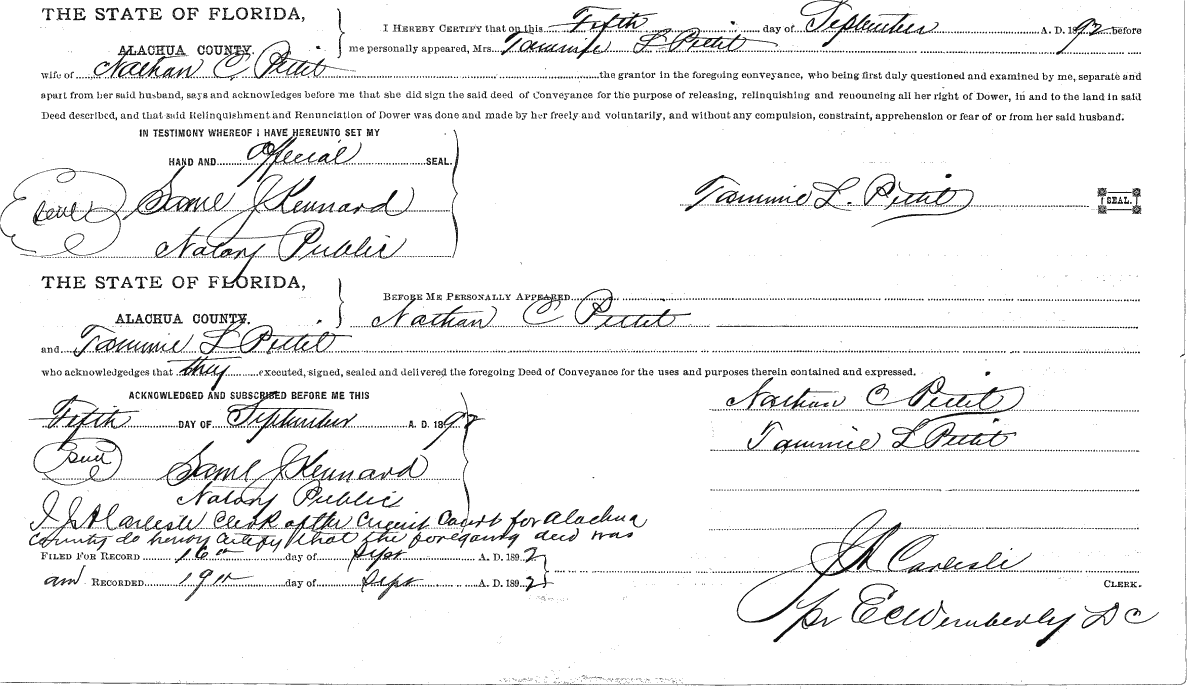 THE STATE OF FLORIDA,
ALACHUA COUNTY.
I HEREBY CERTIFY that on this Fifth day of September A. D. 1892 before
me personally appeared, Mrs. Tammie L Pettit
wife of Nathan C. Pettit the grantor in the foregoing conveyance, who being first duly questioned and examined by me, separate and
apart from her said husband, says and acknowledges before me that she did sign the said deed of Conveyance for the purpose of releasing, relinquishing and renouncing all her right of Dower, in and to the land in said
Deed described, and that said Relinquishment and Renunciation of Dower was done and made by her freely and voluntarily, and without any compulsion, constraint, apprehension or fear of or from her said husband.
IN TESTIMONY WHEREOF I HAVE HEREUNTO SET MY
HAND AND Official SEAL.
Seal Saml J Kennard
Notary Public
Tammie L. Pettit SEAL.
THE STATE OF FLORIDA,
ALACHUA COUNTY.
BEFORE ME PERSONALLY APPEARED
Nathan C Pettit
and Tammie L Pettit
who acknowledgedges that they executed, signed, sealed and delivered the foregoing Deed of Conveyance for the uses and purposes therein contained and expressed.
ACKNOWLEDGED AND SUBSCRIBED BEFORE ME THIS
Fifth DAY OF September A. D. 1892
Seal Saml J Kennard
Notary Public
Nathan C Pettit
Tammie L Pettit
I J A Carlisle Clerk of the Circuit Court for Alachua
County do hereby certify that the foregoing deed was
FILED FOR RECORD 16th day of Sept A. D. 1892
and RECORDED 19th day of Sept A. D. 1892
J A Carlisle
CLERK.
pr E C Wemberly D C